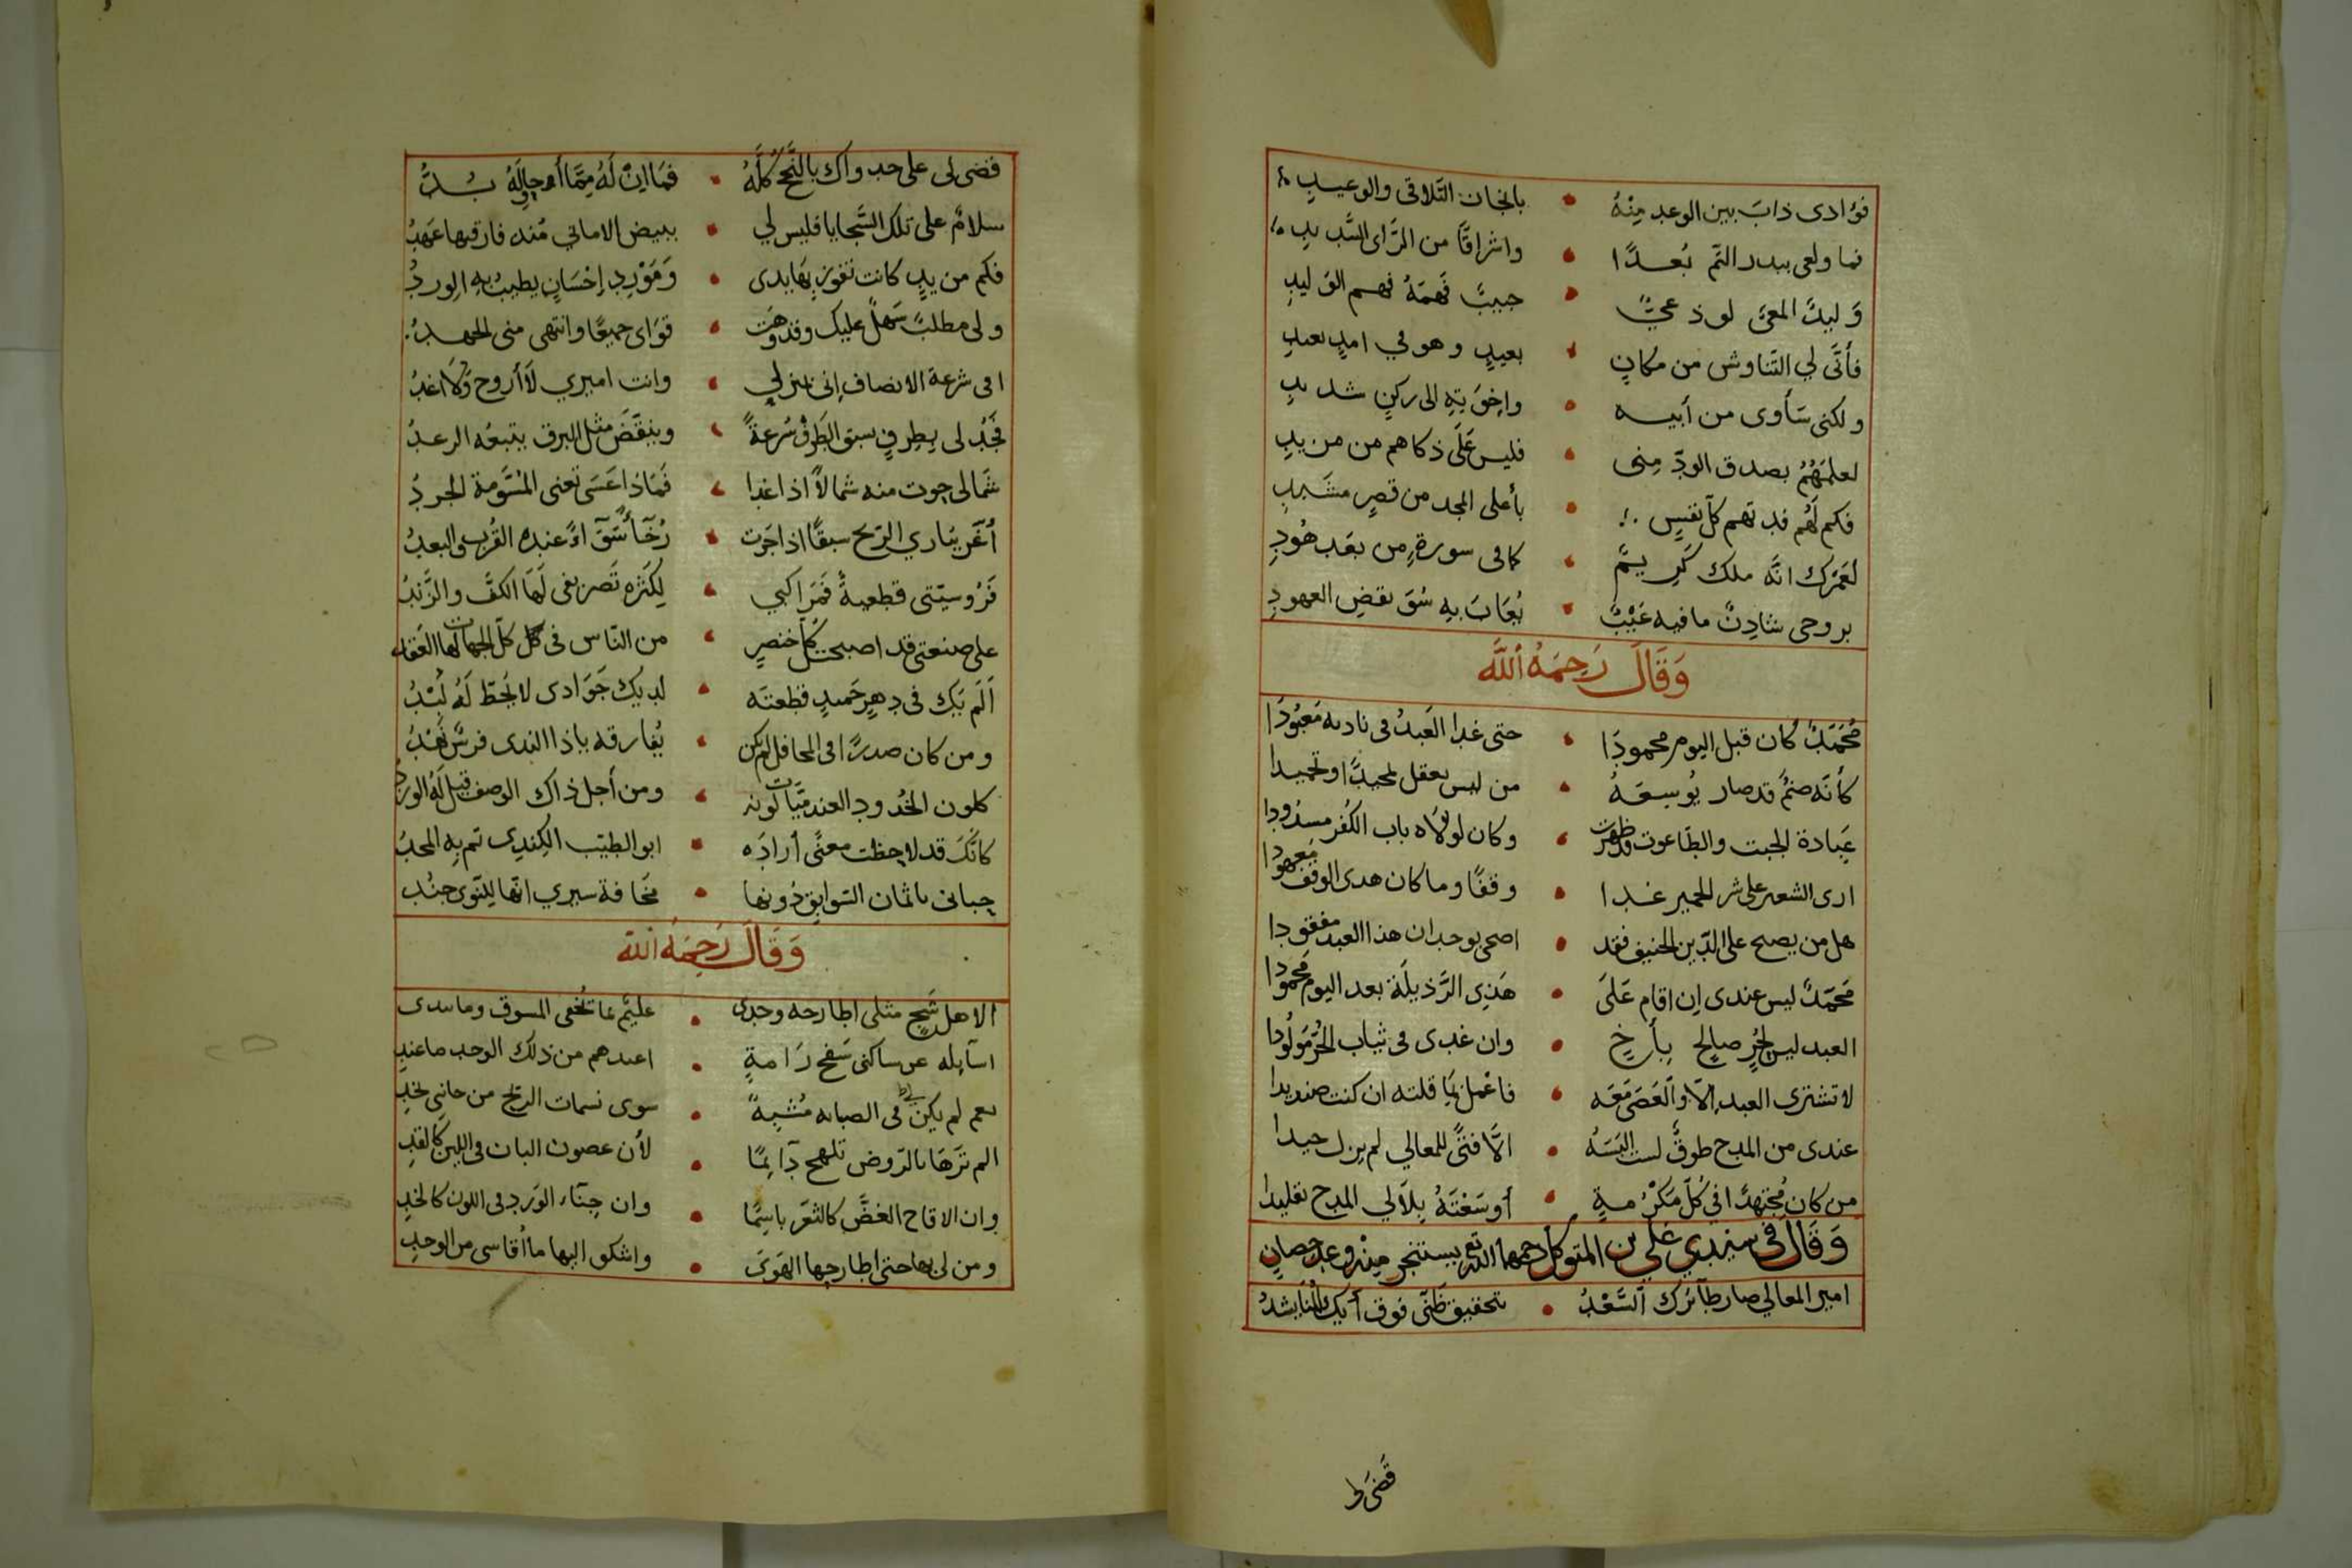 فؤادى ذابَ بين الوعد مِنْهُ • بانجان التلاقى والوعيدِ
فما ولعى ببدر التم بُعدًا • واشراقًا من الرَّاى السَّديدِ
وَليدٌ المعىٌّ لوذعىٌّ • حبيبٌ فَهمَهُ فهم الوَليدِ
فأَنَّى لي التَّناوش من مكانٍ • بعيدٍ وهو في امدٍ بعيدِ
ولكنى سَأوى من أبيه • واِخوَتِهِ الى ركنٍ شديدِ
لعلمَهُمُ بصدق الودّ مِنى • فليس عَلَى ذكاهم من مزيدِ
فكم لَهُم فد تهم كلّ نفسٍ • بأعلى المجد من قصرٍ مشيدِ
لَعَمْرك انَّه ملك كَرِيمٌ • كما فى سورةٍ من بعَد هُودِ
بروحى شادِنٌ ما فيه عَيْبٌ • يُعَابَ بِهِ سُوَ نقضِ العهودِ
وَقَالَ رَحِمَهُ اللَّه
مُحَمَّدٌ كان قبل اليوم محمودَا • حتى غدا العَبدُ فى ناديه مَعبُودَا
كأنّه صنمٌ قد صار يُوسِعَهُ • من ليس يعقل تمجيدًا وتحميدا
عِبادة الجبت والطّاعوت قد ظهرت • وكان لولاه باب الكُفر مسدُودا
ارى الشعير على شر الحمير غدا • وقفًا وما كان هدى الوقف مَعهودا
هل من يصيح على الدّين الحنيف فقد • اضحى بوجدان هذا العبد مفقودا
مَحَمّدٌ ليس عندى اِن اقام عَلَى • هَذِى الرَّذيلَة بعد اليوم مَحمودَا
العبد ليس لِحُرٍ صالحٍ بِأَخٍ • وان غدى فى ثياب الحُرّ مَولُودا
لا تشترى العبد اِلّا والعَصَى مَعَه • فاعْمل بمَا قلته ان كنت صنديدا
عندى من المدح طوقٌ لست اُلبَسَهُ • الَّا فتىً للمعالي لم يزل حيدا
من كان مُجتهدًا فى كُلّ مَكرُمةٍ • أَوسَعْتَهُ بِلآلي المدح تقليدا
وَقَالَ فى سَيّدي عَلي بن المتوكل رحمهما الله تع يستنجز مِنْه وعد حصانٍ
امير المعالي صار طآئرك السَّعْدُ • تحقيق ظَنّى فوق أيك الثنا يشدُ
قَضَى ل
قضى لى على جدواك بالنَّجحُ كُلَّهُ • فمَا اِنْ لَهُ مِمَّا أُحاوِلَهُ بُدُّ
سلامٌ على تلك السَّجايا فليس لي • ببيض الامانى مُنذ فارقتها عَهدُ
فكم من يدٍ كانت تفوز بهَا يدى • وَمَوْرِدِ اِحْسَانٍ يطيبُ بِهِ الوِردُ
ولى مطلبٌ سَهلٌ عليك وقد وَهَت • قوَاى جميعًا وانتهى منى الجهدُ
افى شرعة الانصاف اِنى بمنزلي • وانت اميري لَا أروح وَلَا اغدُ
فجُد لى بِطِرفٍ سبق الطَرْف سُرعةً • وينقَضَ مثل البرق يتبعُه الرعدُ
شَمالى جوت منه شمالاً اذا غدا • فَمَاذا عَسَى تعنى المسَّومة الجردُ
أغَر يبَاري الرّيح سبقًا اذا جَرَت • رُخَآءً سَوآءً عنده القُرب والبعدُ
فَرُوسيّتى قطعيةٌ فَمَراكبي • لِكَثره تَصريفى لَهَا الكفّ والزَّندُ
على صنعتى قد اصبحت كل خنصرٍ • من النّاس فى كلّ الجهات لها العَقدُ
اَلَم يَك فى دهرٍ حَميدٍ قطعته • لديك جَوَادى لا يُحطّ لَهُ لُبْدُ
ومن كان صدرًا فى المحافل لم يكن • يُفارقه يا ذا الندى فرسٌ نَهْدُ
كلون الخُدودِ العندميّات لونه • ومن أجل ذاك الوصف قيل لَهُ الوردُ
كأنَّك قد لاحظت معنًى أرادَه • ابو الطيّب الكِندِى تم بِهِ المجدُ
حبانى باثمان السّوابق دُونها • مَخافة سيري انّها للنّوى جندُ
وَقَالَ رَحِمَهُ الله
الا هل شَجٍ مثلى اطارحه وجدى • عليمٌ بما تُخفى المسوق وما تبدى
اسآيله عن ساكنى سَفح رَامةٍ • اعندهم من ذلك الوجد ما عندِ
نعم لم يكن لى فى الصبابه مُشبِهً • سوى نسمات الريح من جانبى نجدِ
الم ترَهَا بالرّوض تلهج دَآئمًا • لأن عصون البان فى اللين كالقدِ
وان الاقاح الغضَّ كالثغَر باسِمًا • وان جِنَآء الوَرد فى اللون كالخدِ
ومن لى بها حتى اطارحها الهَوَى • واشكو اليها ما أقاسى من الوجدِ